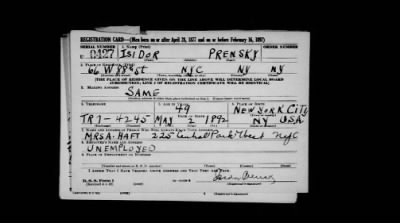 REGISTRATION CARD—(Men born on or after April 28, 1877 and on or before February 16, 1897)
SERIAL NUMBER 1. NAME (Print) ORDER NUMBER
U 0427 ISIDOR PRENSKY
2. PLACE OF RESIDENCE (Print)
66 W 88th St NYC NY NY
[THE PLACE OF RESIDENCE GIVEN ON THE LINE ABOVE WILL DETERMINE LOCAL BOARD
JURISDICTION; LINE 2 OF REGISTRATION CERTIFICATE WILL BE IDENTICAL]
3. MAILING ADDRESS
SAME
4. TELEPHONE 5. AGE IN YEARS 6. PLACE OF BIRTH
49 NEW YORK CITY
TR7-4245 MAY 2 1892 NY USA
7. NAME AND ADDRESS OF PERSON WHO WILL ALWAYS KNOW YOUR ADDRESS
MRS A. HAFT 225 Central Park West NYC
8. EMPLOYER'S NAME AND ADDRESS
UNEMPLOYED
9. PLACE OF EMPLOYMENT OR BUSINESS
I AFFIRM THAT I HAVE VERIFIED ABOVE ANSWERS AND THAT THEY ARE TRUE.
D.S.S. Form 1
Isidor Prensky